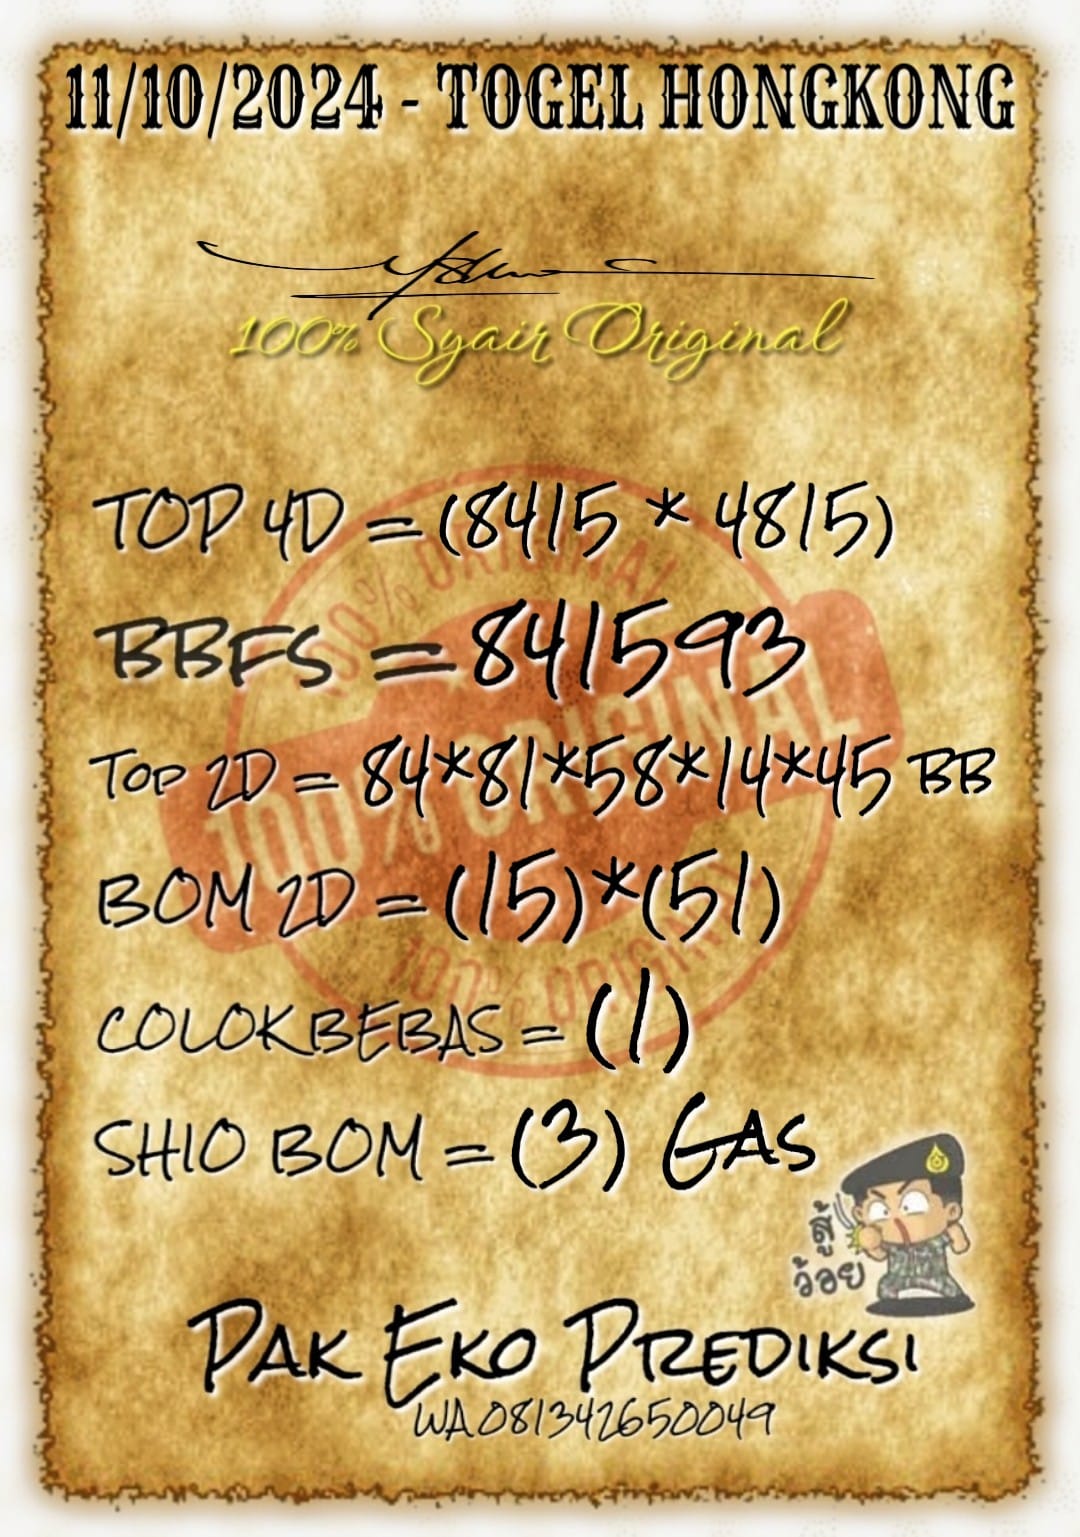 11/10/2024 - TOGEL HONGKONG
100% Syair Original
TOP 4D = (8415 * 4815)
BBFS = 841593
TOP 2D = 84*81*58*14*45 BB
BOM 2D = (15)*(51)
COLOKBEBAS = (1)
SHIO BOM = (3) GAS
100% ORIGINAL
100% ORIGINAL
100% ORIGINAL
สู้
ว้อย
PAK EKO PREDIKSI
WA 081342650049